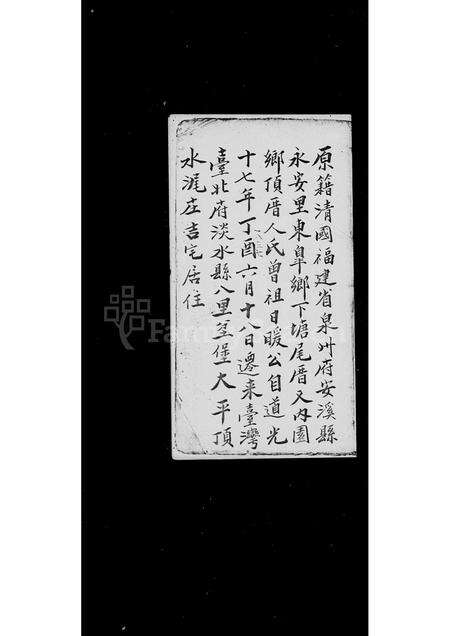 原籍清國福建省泉州府安溪縣
永安里東皐鄉下塘尾厝又內園
鄉頂厝人氏曾祖日暖公自道光
十七年丁酉六月十八日遷来臺灣
臺北府淡水縣八里坌堡大平頂
水涀庄吉宅居住